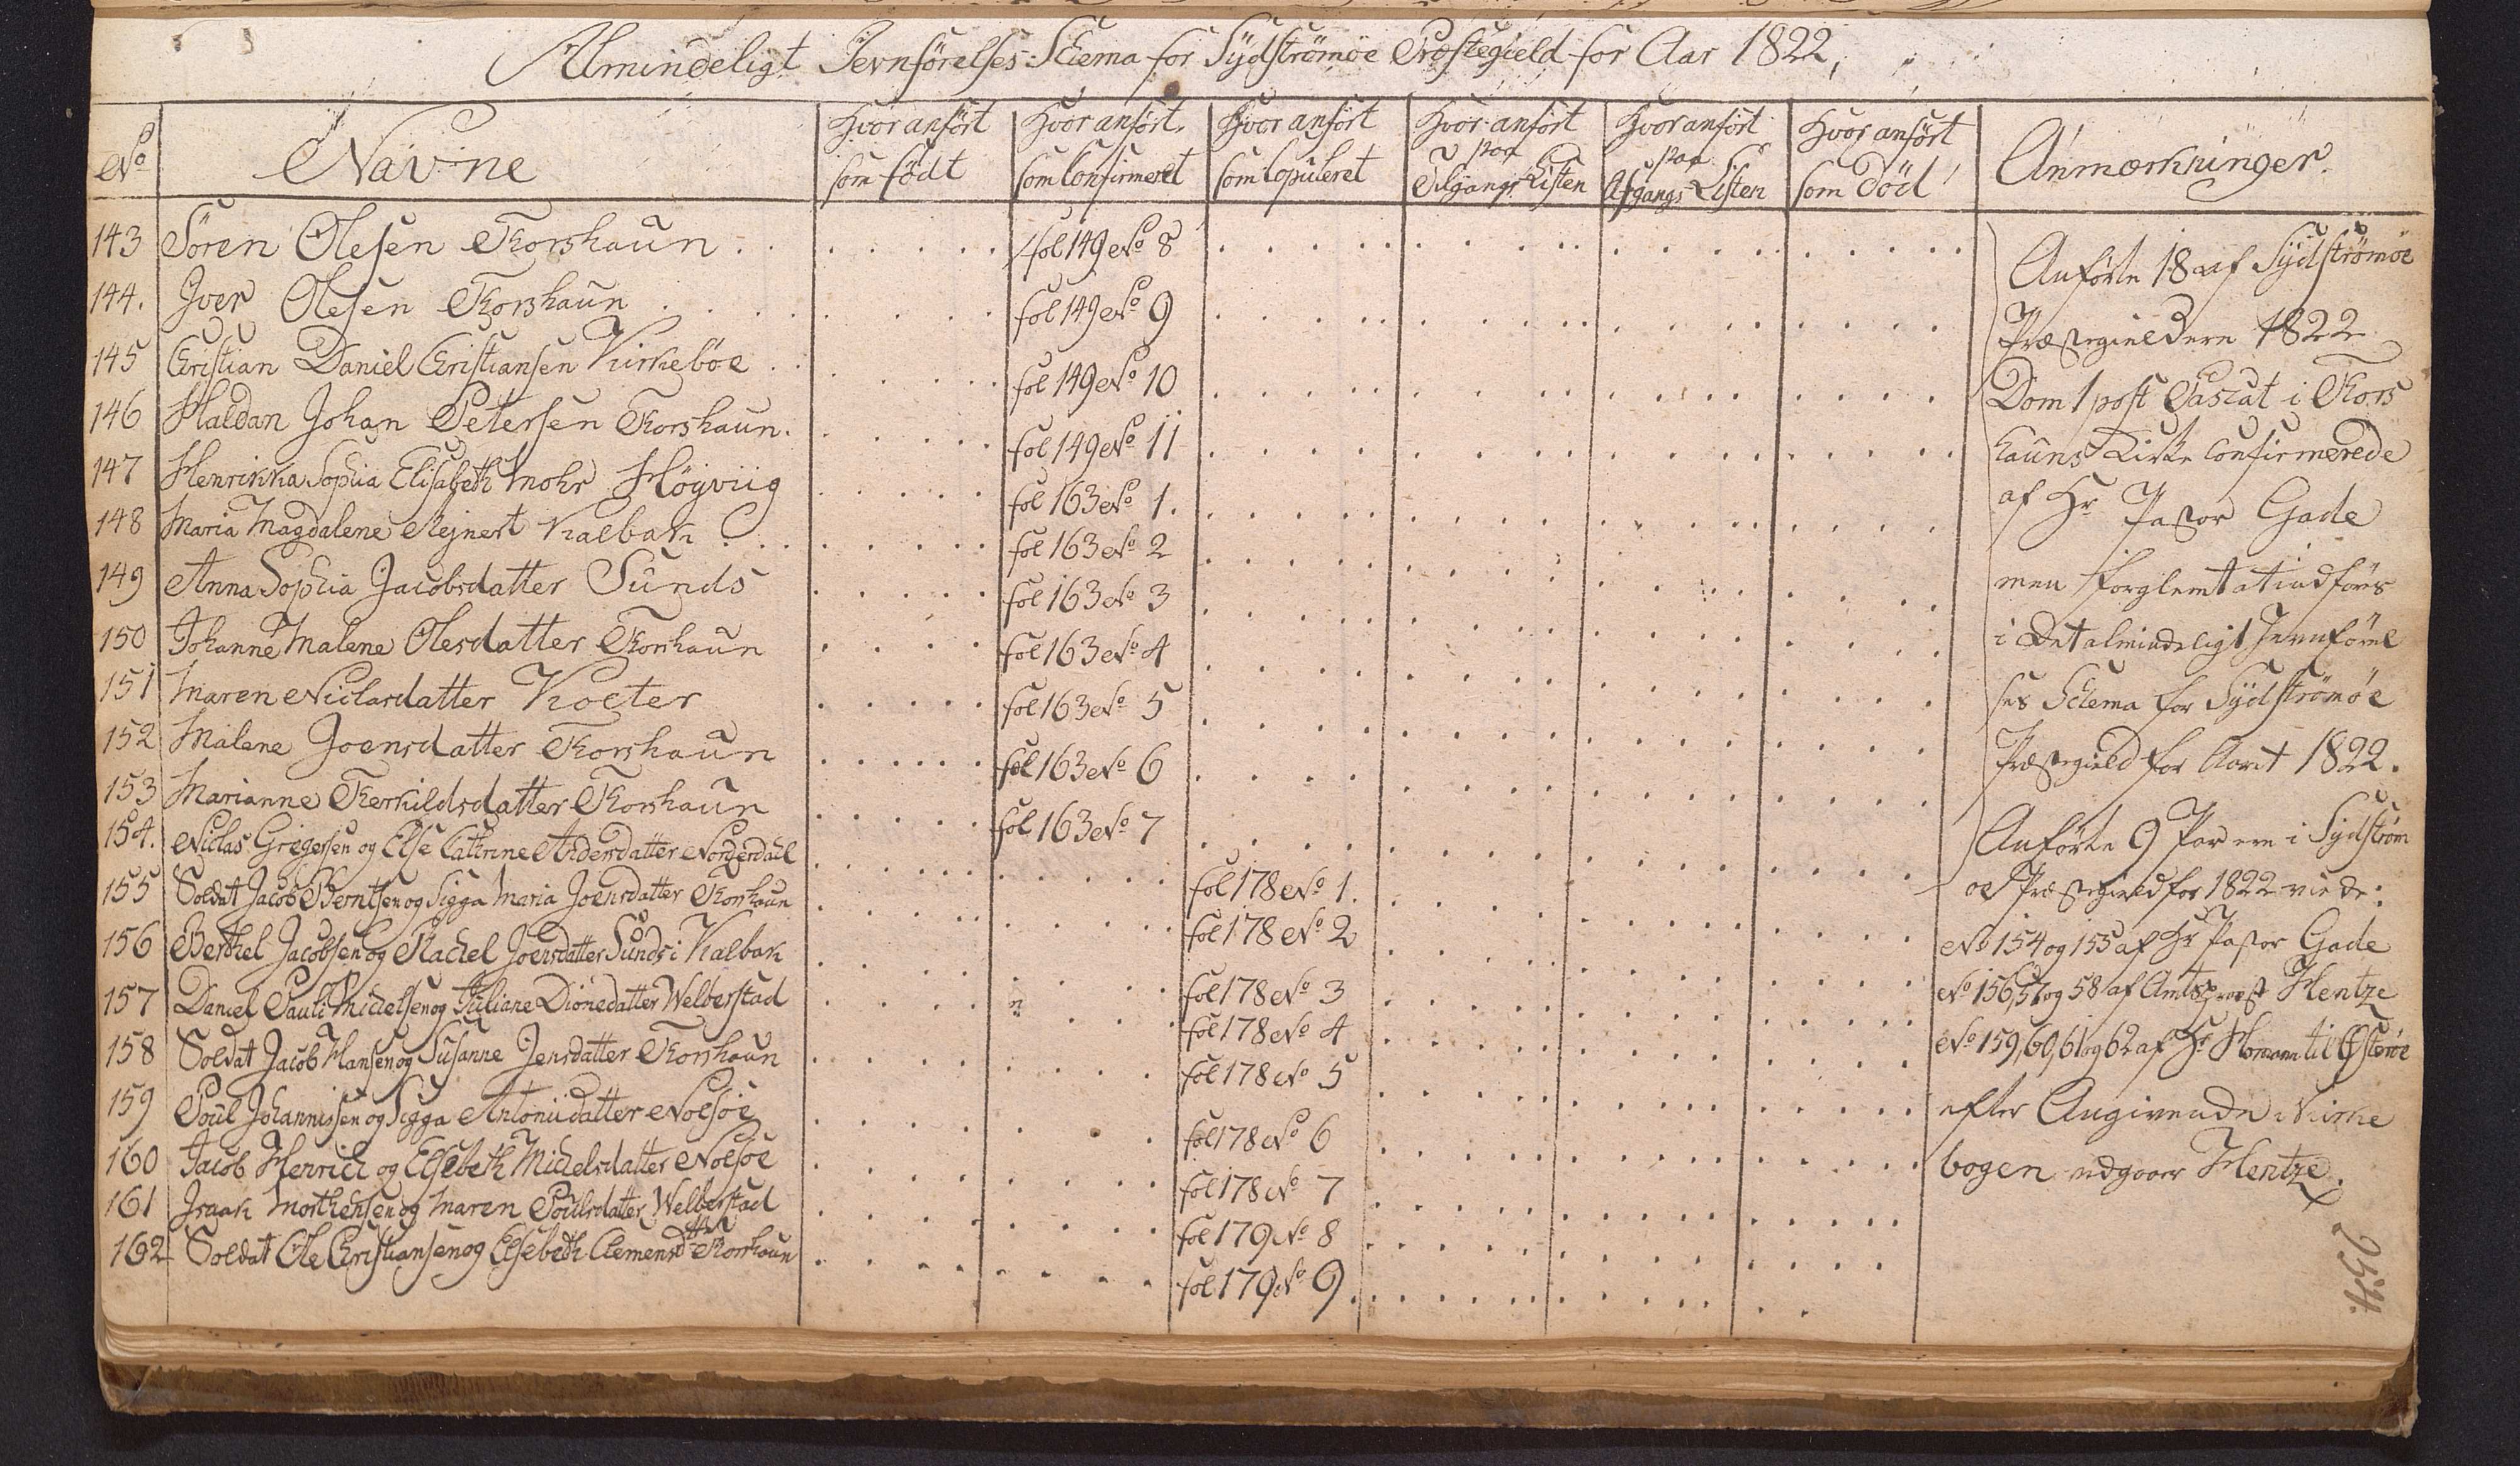 Almindeligt Jevnförelses-Schema for Sÿdströmöe Præstegield for Aar 1822,
No Navne Hvor anfört som födt Hvor anfört som Confirmeret Hvor anfört som Copuleret Hvor anfört paa Tilgangs-Listen Hvor anfört paa Afgangs-Listen Hvor anfört som död Anmærkninger.
143 Sören Olesen Thorshaun fol 149 No 8
144. Iver Olesen Thorshaun fol 149 No 9
145 Christian Daniel Christiansen Kirkeböe fol 149 No 10
146 Haldan Johan Petersen Thorshaun. fol 149 No 11
147 Henrikka Sophia Elisabeth Mohr Höyviig fol 163 No 1.
148 Maria Magdalene Rejnert Kalbak fol 163 No 2
149 Anna Sophia Jacobsdatter Sunds fol 163 No 3
150 Johanne Malene Olesdatter Thorshaun fol 163 No 4
151 Maren Niclasdatter Kolter fol 163 No 5
152 Malene Joensdatter Thorshaun fol 163 No 6
153 Marianne Therkildsdatter Thorshaun fol 163 No 7
154. Niclas Gregersen og Else Cathrine Andersdatter Norderdail fol 178 No 1.
155 Soldat Jacob Berntsen og Sigga Maria Joensdatter Thorshaun fol 178 No 2
156 Berthel Jacobsen og Rachel Joensdatter Sunds i Kalbak fol 178 No 3
157 Daniel Pauli Michelsen og Juliane Dionedatter Welberstad fol 178 No 4
158 Soldat Jacob Hansen og Susanne Jensdatter Thorshaun fol 178 No 5
159 Poul Johannissen og Sigga Antoniidatter Nolsöe fol 178 No 6
160 Jacob Henrich og Elsebeth Michelsdatter Nolsöe fol 178 No 7
161 Isaak Morthensen og Maren Poulsdatter Welberstad fol 179 No 8
162 Soldat Ole Christiansen og Elsebeth Clemensdttr Thorshaun fol 179 No 9
Anförte 18 af Sÿdströmöe
Præstegieldere 1822
Dom 1 post Pascat i Thors
hauns Kirke Confirmerede
af Hr Pastor Gade
men forglemt at indföres
i Det almindeligt Jevnförel
ses Schema for Sÿdströmöe
Præstegield for Aaret 1822.
Anförte 9 Par ere i Sÿdström
öe Præstegield for 1822 viede:
No 154 og 155 af Hr Pastor Gade
No 156, 57 og 58 af Amtsprovst Hentze
No 159, 60, 61 og 62 af Hr til Österöe
efter Angivende i Kirke
bogen udgaaer Hentze.
954.